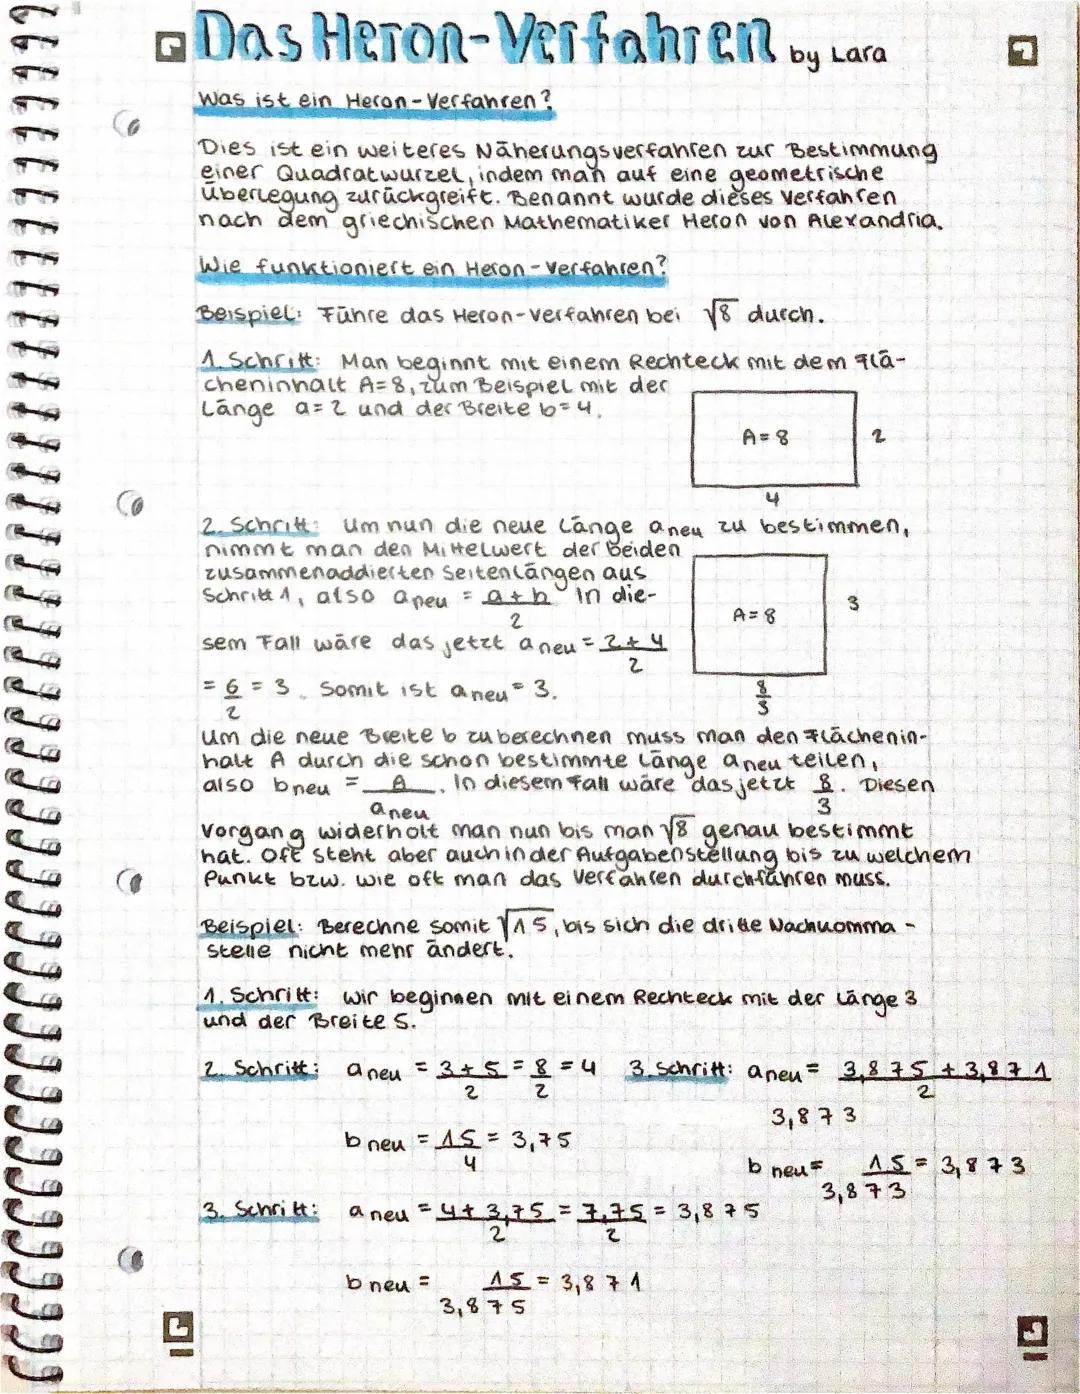 Das Heron-Verfahren by Lara
Was ist ein Heron-Verfahren?
Dies ist ein weiteres Näherungsverfahren zur Bestimmung
einer Quadratwurzel, indem man auf eine geometrische
Überlegung zurückgreift. Benannt wurde dieses Verfahren
nach dem griechischen Mathematiker Heron von Alexandria.
Wie funktioniert ein Heron-Verfahren?
Beispiel: Führe das Heron-Verfahren bei √8 durch.
1. Schritt: Man beginnt mit einem Rechteck mit dem Flä-
cheninhalt A=8, zum Beispiel mit der
Länge a=2 und der Breite b=4.
A=8 2
4
2. Schritt: Um nun die neue Länge a neu zu bestimmen,
nimmt man den Mittelwert der beiden
zusammenaddierten Seitenlängen aus
Schritt 1, also a neu = a+b/2 In die-
sem Fall wäre das jetzt a neu = 2+4/2
= 6/2 = 3. Somit ist a neu = 3.
A=8 3
8/3
Um die neue Breite b zu berechnen muss man den Flächenin-
halt A durch die schon bestimmte Länge a neu teilen,
also b neu = A/a neu. In diesem Fall wäre das jetzt 8/3. Diesen
Vorgang widerholt man nun bis man √8 genau bestimmt
hat. Oft steht aber auch in der Aufgabenstellung bis zu welchem
Punkt bzw. wie oft man das Verfahren durchführen muss.
Beispiel: Berechne somit √15, bis sich die dritte Nachkomma-
stelle nicht mehr ändert.
1. Schritt: Wir beginnen mit einem Rechteck mit der Länge 3
und der Breite 5.
2. Schritt: a neu = 3+5/2 = 8/2 = 4
b neu = 15/4 = 3,75
3. Schritt: a neu = 4+3,75/2 = 7,75/2 = 3,875
b neu = 15/3,875 = 3,871
3. Schritt: a neu = 3,875+3,871/2
3,873
b neu = 15/3,873 = 3,873